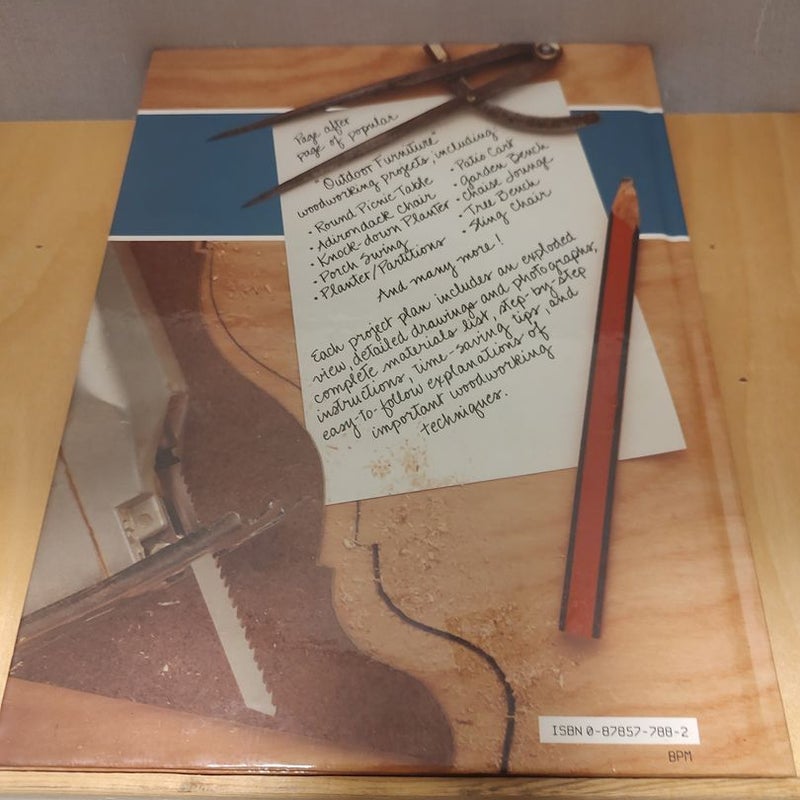 Page after
page of popular
"Outdoor Furniture"
woodworking projects, including
• Round Picnic Table
• Adirondack Chair
• Knock-down Planter
• Porch Swing
• Planter/Partitions
• Patio Cart
• Garden Bench
• Chaise Lounge
• Tree Bench
• Sling Chair
And many more!
Each project plan includes an exploded
view, detailed drawings and photographs,
complete materials list, step-by-step
instructions, time-saving tips, and
easy-to-follow explanations of
important woodworking
techniques.
ISBN 0-87857-788-2
BPM